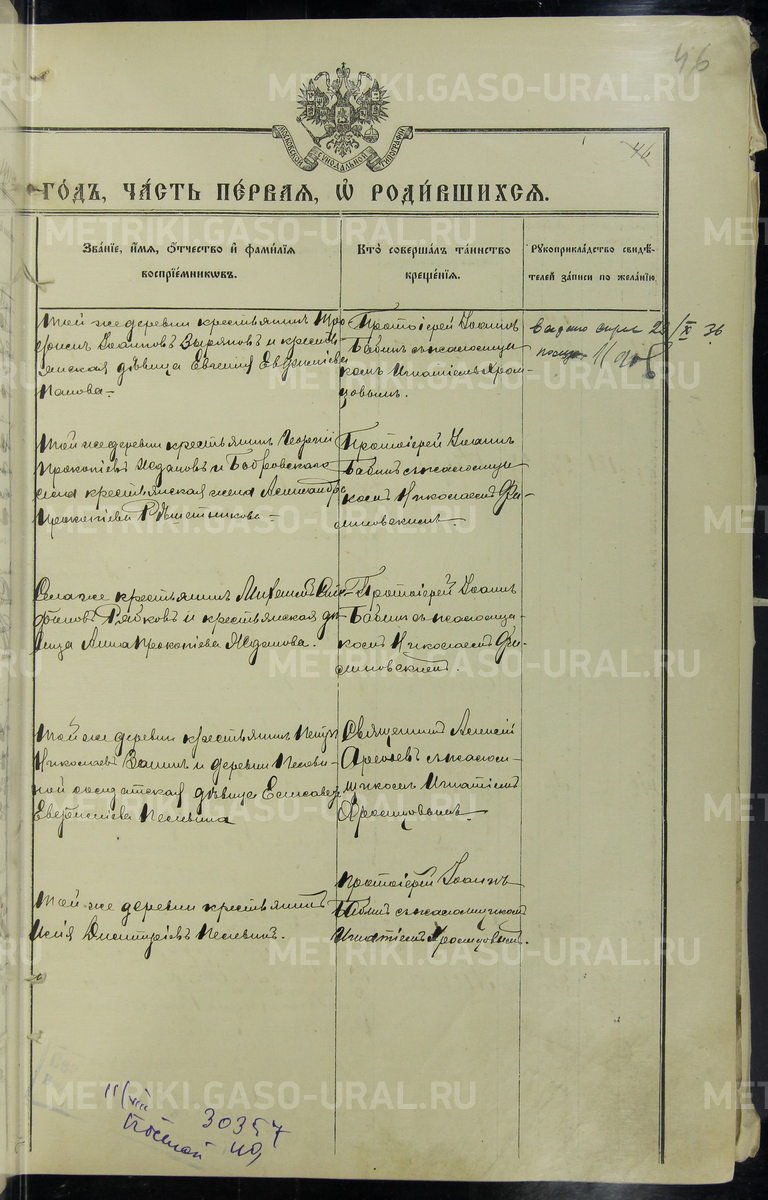 46
46
МОСКОВСКОЙ СѴНОДАЛЬНОЙ ТИПОГРАФІИ
ГО́ДЪ, ЧА́СТЬ ПЕ́РВАЯ, Ѡ҆ РОДИ́ВШИХСѦ.
Зва́нїе, и҆́мя, ѻ҆́тчество и҆ фами́лїя
воспрїе́мниковъ.
Кто̀ соверша́лъ та́инство
креще́нїя.
Рꙋкоприкла́дство свидѣ́-
телей за́писи по жела́нїю.
Той же деревни крестьянинъ Тро
Іоанновъ Зыряновъ и кресть
янская дѣвица Евгенія Евгеніева
Панова
Протоіерей Іоаннъ
Бабинъ съ псаломщи
комъ Игнатіемъ Хром
цовымъ.
выдано 29/X 36
Той же деревни крестьянинъ Георгій
Прокопіевъ Ждановъ и Бобровскаго
села крестьянская жена Александра
Прокопіева Рѣшетникова
Протоіерей Іоаннъ
Бабинъ съ псаломщи
комъ Николаемъ Фи-
линовскимъ
Села же крестьянинъ Михаилъ Сте-
фановъ Рябковъ и крестьянская дѣ-
вица Анна Прокопіева Жданова.
Протоіерей Іоаннъ
Бабинъ съ псаломщи
комъ Николаемъ Фи-
линовскимъ.
Той же деревни крестьянинъ Петръ
Николаевъ и деревни
солдатская дѣвица Елисавета
Священникъ Алексій
Арефьевъ съ псалом-
щикомъ Игнатіемъ
Хромцовымъ.
Той же деревни крестьянинъ
Илія Димитріевъ
Протоіерей Іоаннъ
Бабинъ съ псаломщикомъ
Игнатіемъ Хромцовымъ.
30357
METRIKI.GASO-URAL.RU